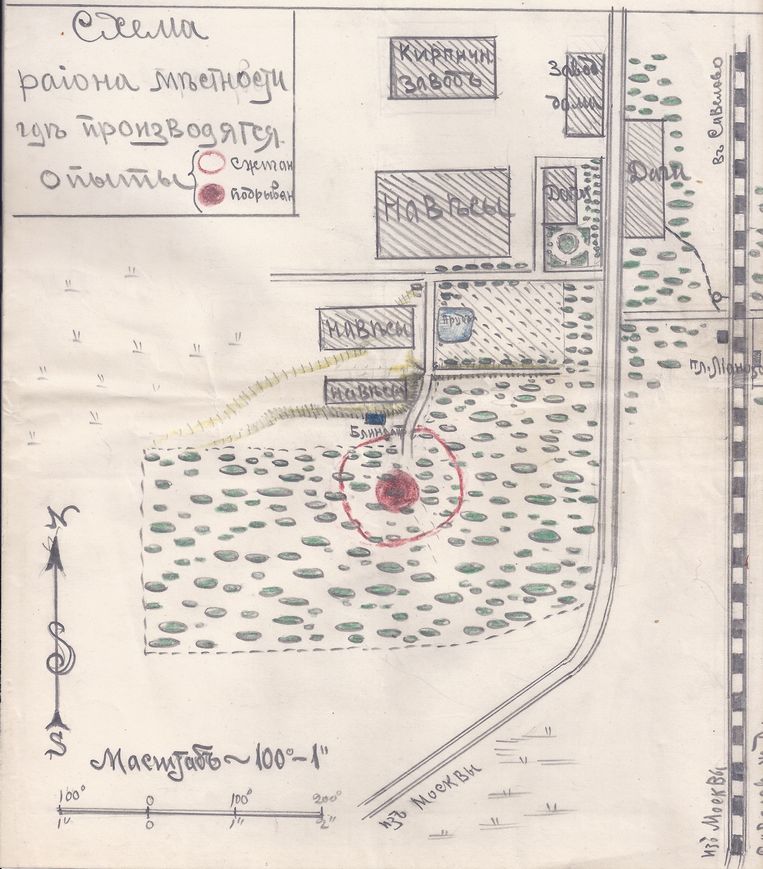 Схема
района мѣстности
гдѣ производятся
опыты
сжиган
подрыван
Кирпичн.
заводъ
Завод
дома
въ Савелово
Дачи
Дачи
Навѣсы
Навѣсы
Прудъ
Навѣсы
Блиндаж
пл. Ліаноз
Масштабъ ~ 100° – 1"
100° 0 100° 200°
1" 0 1" 2"
изъ Москвы
изъ Москвы